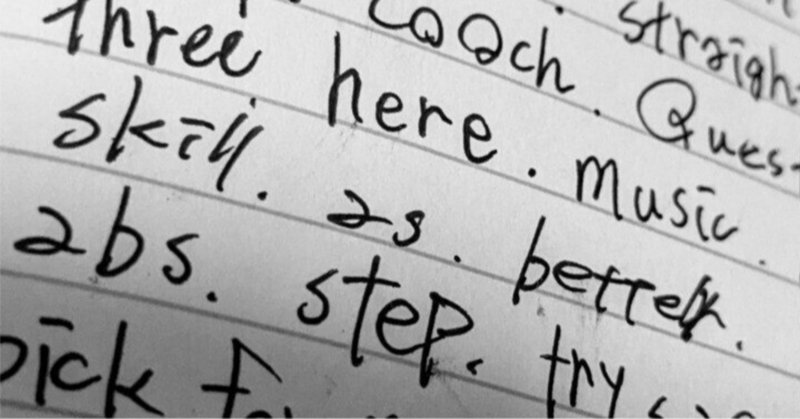 straigh
coach. Ques
three here. music.
skill. as. better.
abs. step. try
pick